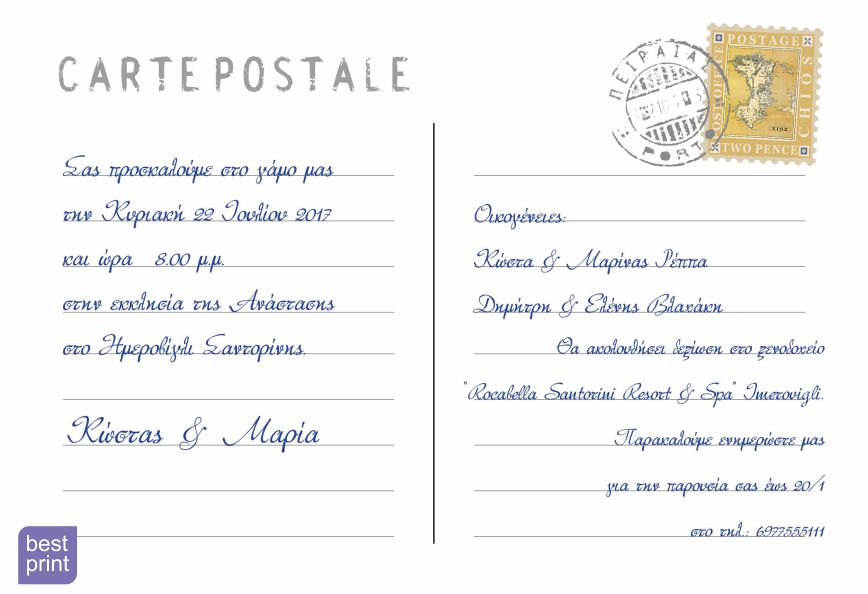 CARTE POSTALE
Σας προσκαλούμε στο γάμο μας
την Κυριακή 22 Ιουλίου 2017
και ώρα 8.00 μ.μ.
στην εκκλησία της Ανάστασης
στο Ημεροβίγλι Σαντορίνης.
Κώστας & Μαρία
best
print
ΠΕΙΡΑΙΑΣ
PORTO
POSTAGE
POST OFFICE
CHIOS
ΧΙΟΣ
TWO PENCE
Οικογένειες:
Κώστα & Μαρίνας Ρέππα
Δημήτρη & Ελένης Βλαχάκη
Θα ακολουθήσει δεξίωση στο ξενοδοχείο
"Rocabella Santorini Resort & Spa" Imerovigli.
Παρακαλούμε ενημερώστε μας
για την παρουσία σας έως 20/1
στο τηλ.: 6977555111